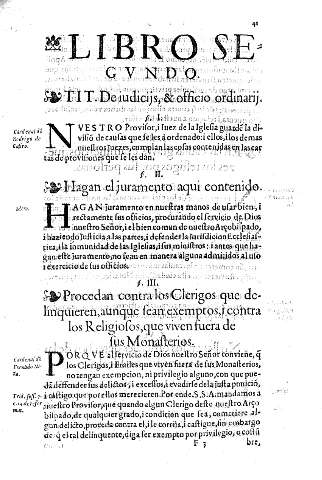 42
LIBRO SE-
CVNDO.
TIT. De iudicijs, & officio ordinarij.
§. I.
Cardenal dõ
Rodrigo de
Castro.
NVESTRO Provisor, i Iuez de la Iglesia guarde la di-
visiõ de causas que se les à ordenado: i ellos, i los demas
nuestros juezes, cumplan las cosas contenidas en las car
tas de provisiones que se les dan.
§. II.
Hagan el juramento aqui contenido.
Idem.
HAGAN juramento en nuestras manos de usar bien, i
rectamente sus oficios, procurando el servicio de Dios
nuestro Señor, el bien comun de nuestro Arçobispado,
i haziẽdo Iusticia a las partes, i defender la Iurisdicion Ecclesias
tica, i la comunidad de las Iglesias, i sus ministros: i antes que ha-
gan este juramento, no sean en manera alguna admitidos al uso
i exercicio de sus oficios.
§. III.
Procedan contra los Clerigos que de-
linquieren, aunque sean exemptos, i contra
los Religiosos, que viven fuera de
sus Monasterios.
Cardenal dõ
PORQVE al servicio de Dios nuestro Señor conviene, q̃
los Clerigos, i Frailes que viven fuera de sus Monasterios,
no tengan exempcion, ni privilegio alguno, con que pue-
dã defender sus delictos, i excessos, i evadirse de la justa puniciõ,
i castigo que por ellos merecieren. Por ende. S.S.A. mandamos a
nuestro Provisor, que quando algun Clerigo deste nuestro Arço
bispado, de qualquier grado, i condicion que sea, cometiere al-
gun delicto, proceda contra el, i le corrija, i castigue, sin embargo
de q̃ el tal delinquente, diga ser exempto por privilegio, o costũ
F 3 bre,